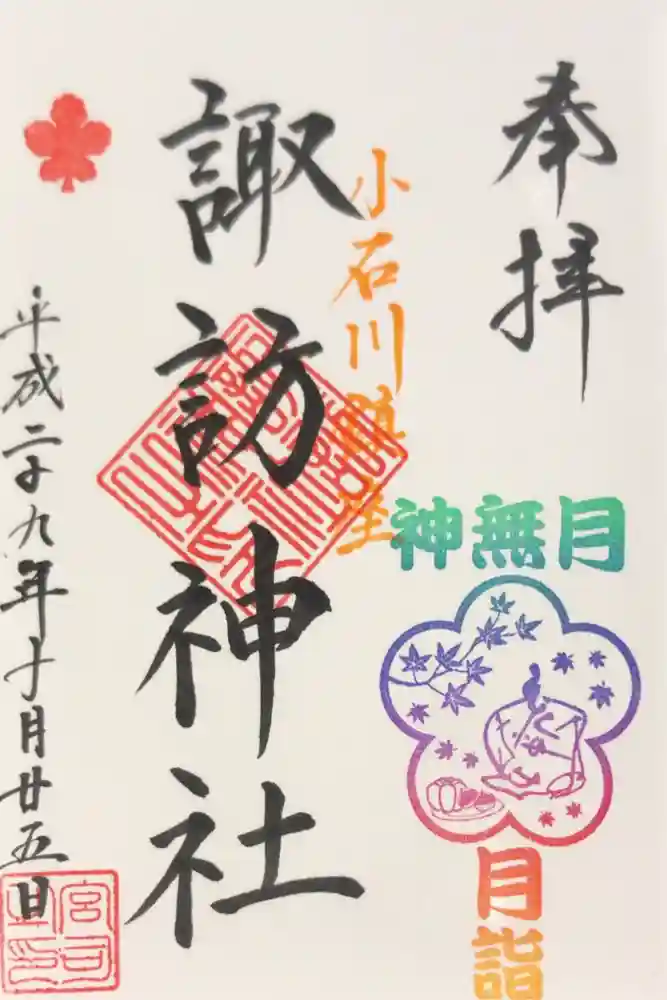 奉拝
小石川鎮座
諏訪神社
平成二十九年十月廿五日
神無月
月詣
宮司